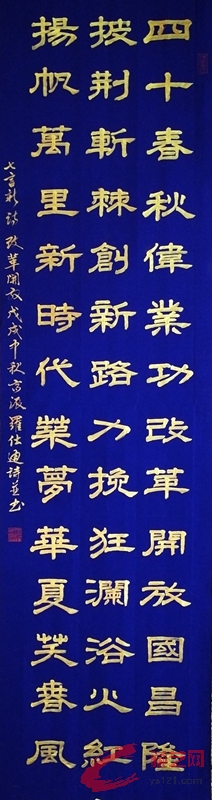 四十春秋偉業功改革開放國昌隆
披荆斬棘創新路力挽狂瀾浴火紅
揚帆萬里新時代築夢華夏笑春風
改革開放戊戌中秋
羅仕迪詩並书